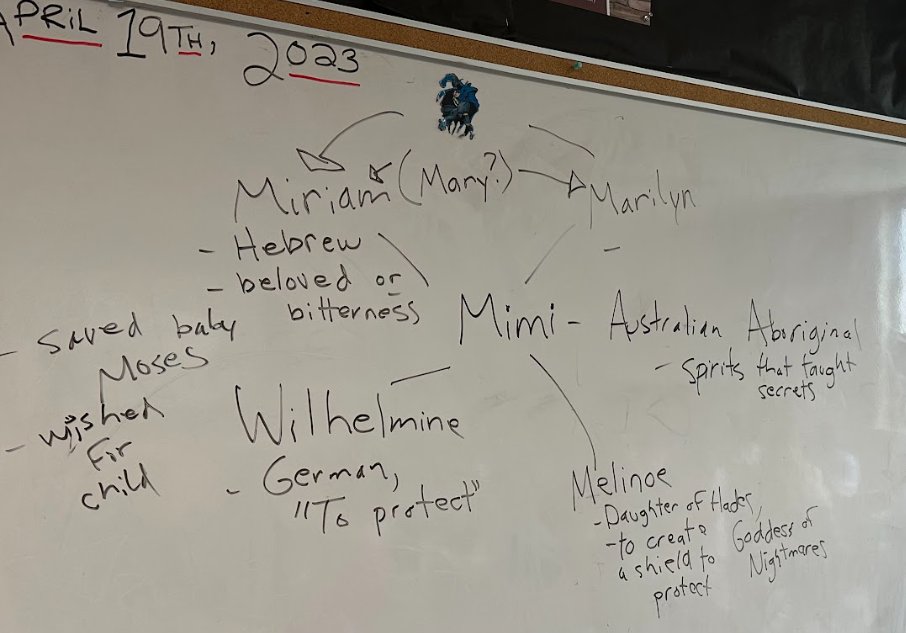 APRIL 19TH, 2023
Miriam (Mary?)
Marilyn
- Hebrew
-
- beloved or
bitterness
- saved baby
Moses
- wished
for
child
Mimi - Australian Aboriginal
- spirits that taught
secrets
Wilhelmine
- German,
"To protect"
Melinoe
- Daughter of Hades,
Goddess of
Nightmares
- to create
a shield to
protect